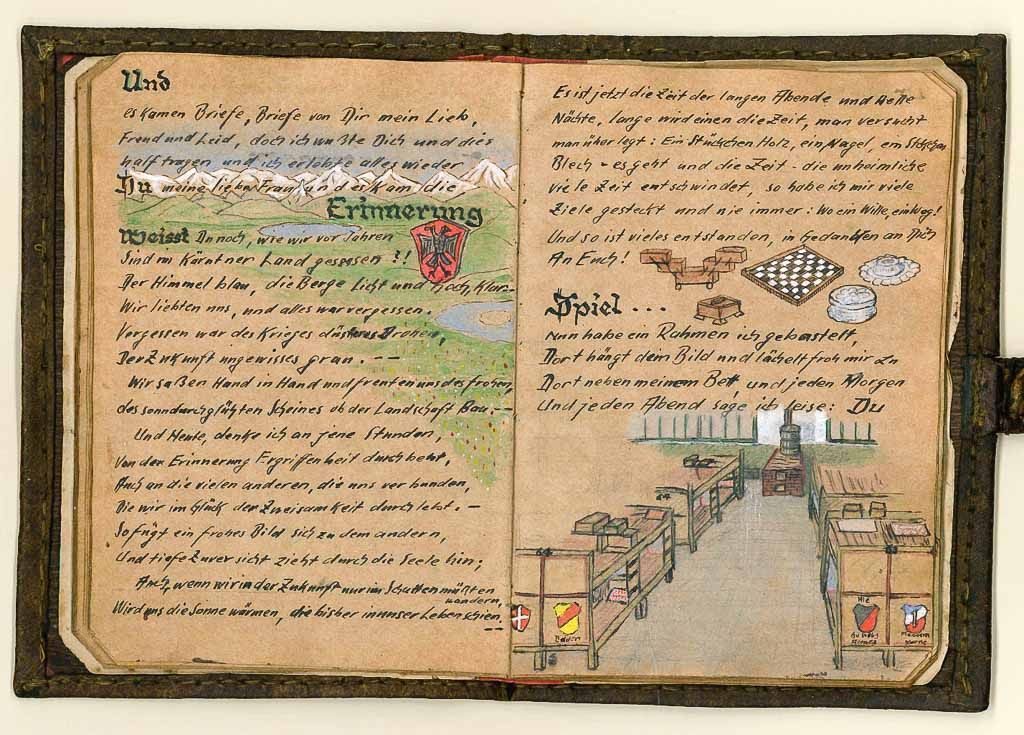 Und
es kamen Briefe, Briefe von Dir mein Lieb,
Freud und Leid, doch ich wußte Dich und dies
half tragen und ich erlebte alles wieder
Du meine liebe Frau und es kam die
Erinnerung
Weisst Du noch, wie wir vor Jahren
Sind im Kärntner Land gesessen?!
Der Himmel blau, die Berge Licht und hoch, klar-
Wir liebten uns, und alles war vergessen.
Vergessen war des Krieges düsteres Drohen,
Der Zukunft ungewisses grau. --
Wir saßen Hand in Hand und freuten uns des frohen,
des sonndurchglühten Scheines ob der Landschaft Bau. -
Und Heute, denke ich an jene Stunden,
Von der Erinnerung Ergriffenheit durchbebt,
Auch an die vielen anderen, die uns verbunden,
Die wir im Glück der Zweisamkeit durchlebt. -
So fügt ein frohes Bild sich zu dem andern,
Und tiefe Zuversicht zieht durch die Seele hin;
Auch, wenn wir in der Zukunft nur im Schatten müßten
wandern,
Wird uns die Sonne wärmen, die bisher in unser Leben schien,
--
Es ist jetzt die Zeit der langen Abende und
Nächte, lange wird einen die Zeit, man versucht
man überlegt: Ein Stückchen Holz, ein Nagel, ein Stückchen
Blech - es geht und die Zeit - die unheimliche
viele Zeit entschwindet, so habe ich mir viele
Ziele gesteckt und nie immer: Wo ein Wille, ein Weg!
Und so ist vieles entstanden, in Gedanken an Dich
An Euch!
Spiel...
Nun habe ein Rahmen ich gebastelt,
Dort hängt dein Bild und lächelt froh mir zu
Dort neben meinem Bett und jeden Morgen
Und jeden Abend sage ich leise: Du
64
Baden